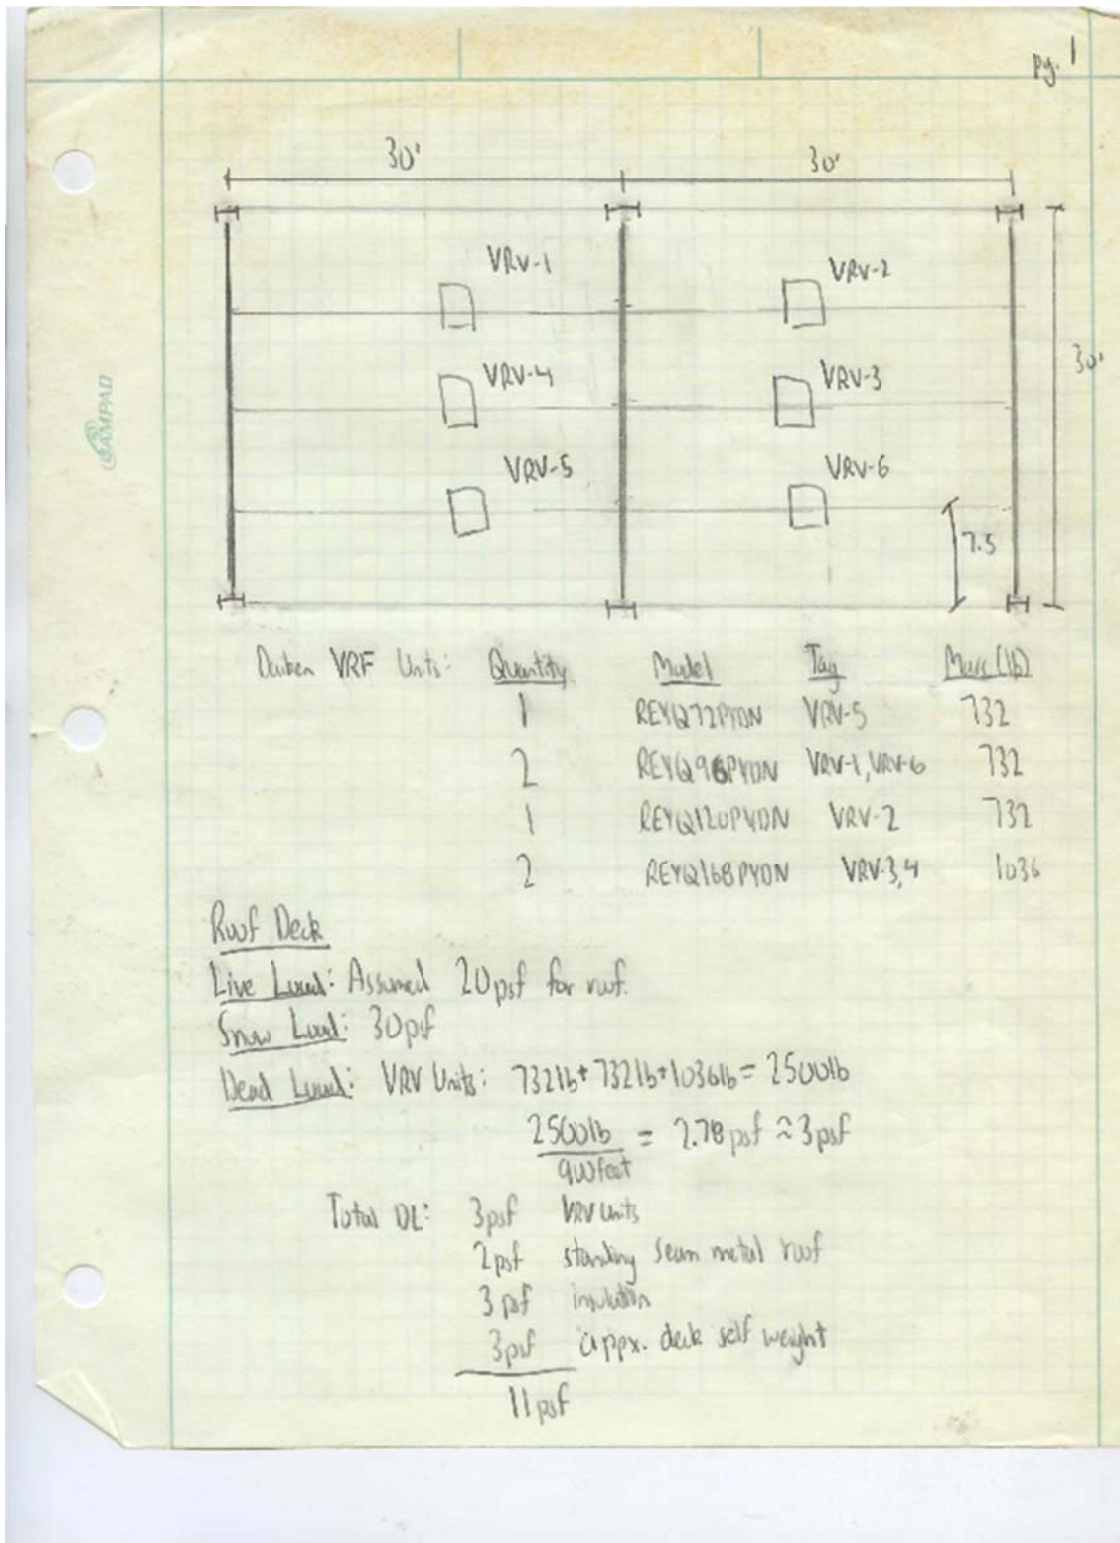 pg. 1
30' 30'
VRV-1 VRV-2
VRV-4 VRV-3
30'
VRV-5 VRV-6
7.5
AMPAD
Daiken VRF Units: Quantity Model Tag Mass (lb)
1 REYQ72PYDN VRV-5 732
2 REYQ96PYDN VRV-1, VRV-6 732
1 REYQ120PYDN VRV-2 732
2 REYQ168PYDN VRV-3,4 1036
Roof Deck
Live Load: Assumed 20psf for roof.
Snow Load: 30psf
Dead Load: VRV Units: 732lb + 732lb + 1036lb = 2500lb
2500lb = 2.78psf ≈ 3psf
900feet
Total DL: 3psf VRV units
2psf standing seam metal roof
3psf insulation
3psf appx. deck self weight
11psf